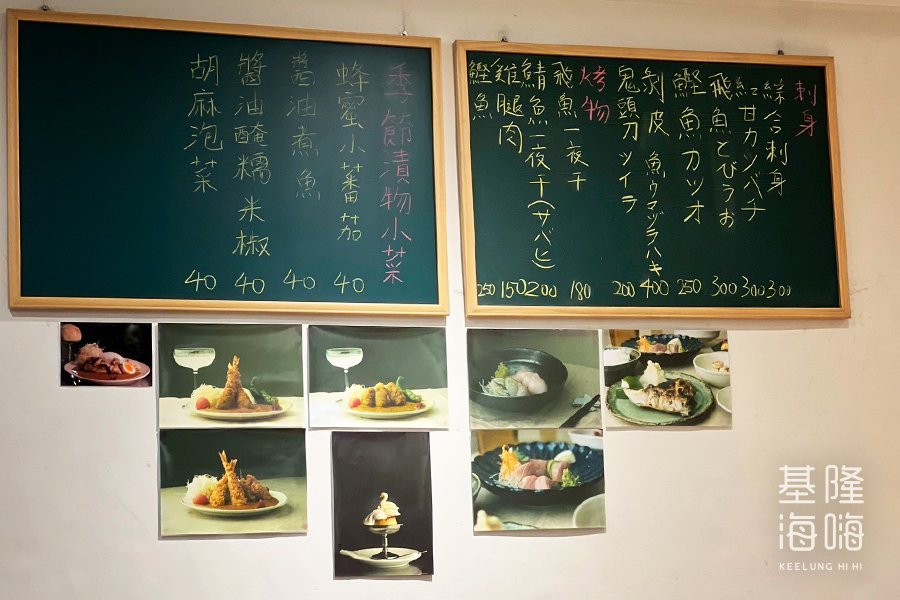 季節漬物小菜
蜂蜜小蕃茄 40
醬油煮魚 40
醬油醃糯米椒 40
胡麻泡菜 40
刺身
綜合刺身 300
紅甘カンパチ 300
飛魚とびうお 300
鰹魚カツオ 250
剝皮魚ウマヅラハキ 400
鬼頭刀ツイラ 200
烤物
飛魚一夜干 180
鯖魚一夜干(サバヒ) 200
雞腿肉 150
鰹魚 250
基隆
海嗨
KEELUNG HI HI